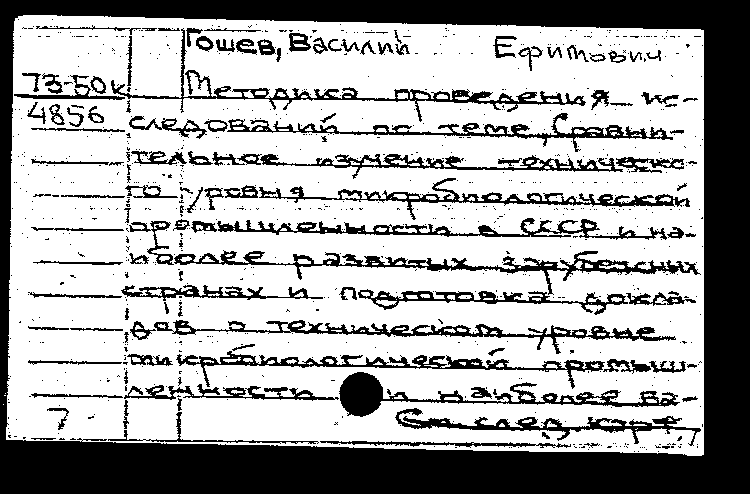 Гошев, Василий Ефимович
73-50к Методика проведения ис-
4856 следований по теме „Сравни-
тельное изучение техническо-
го уровня микробиологической
промышленности в СССР и на-
иболее развитых зарубежных
странах и подготовка докла-
дов о техническом уровне
микробиологической промыш-
ленности и наиболее ва-
7 См. след. карт.